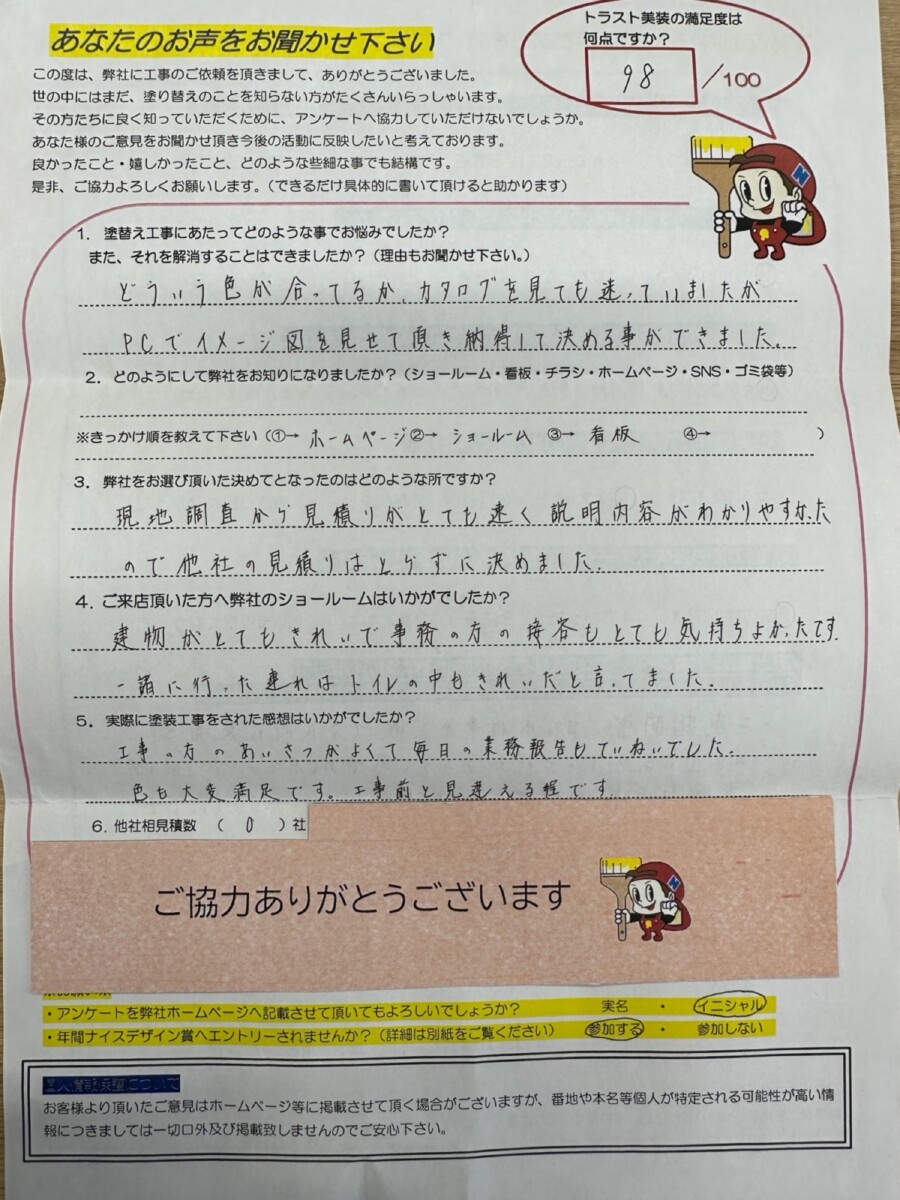 あなたのお声をお聞かせ下さい
トラスト美装の満足度は
何点ですか?
98 /100
この度は、弊社に工事のご依頼を頂きまして、ありがとうございました。
世の中にはまだ、塗り替えのことを知らない方がたくさんいらっしゃいます。
その方たちに良く知っていただくために、アンケートへ協力していただけないでしょうか。
あなた様のご意見をお聞かせ頂き今後の活動に反映したいと考えております。
良かったこと・嬉しかったこと、どのような些細な事でも結構です。
是非、ご協力よろしくお願いします。(できるだけ具体的に書いて頂けると助かります)
N
1. 塗替え工事にあたってどのような事でお悩みでしたか?
また、それを解消することはできましたか?(理由もお聞かせ下さい。)
どういう色が合ってるか、カタログを見ても迷っていましたが
PCでイメージ図を見せて頂き納得して決める事ができました。
2. どのようにして弊社をお知りになりましたか?(ショールーム・看板・チラシ・ホームページ・SNS・ゴミ袋等)
※きっかけ順を教えて下さい(①→ ホームページ ②→ ショールーム ③→ 看板 ④→ )
3. 弊社をお選び頂いた決めてとなったのはどのような所ですか?
現地調査から見積りがとても速く説明内容がわかりやすかった
ので他社の見積りはとらずに決めました。
4. ご来店頂いた方へ弊社のショールームはいかがでしたか?
建物がとてもきれいで事務の方の接客もとても気持ちよかったです
一諸に行った連れはトイレの中もきれいだと言ってました。
5. 実際に塗装工事をされた感想はいかがでしたか?
工事の方のあいさつがよくて毎日の業務報告もていねいでした。
色も大変満足です。工事前と見違える程です。
6. 他社相見積数 ( 0 )社
ご協力ありがとうございます
N
・アンケートを弊社ホームページへ記載させて頂いてもよろしいでしょうか? 実名 ・ イニシャル
・年間ナイスデザイン賞へエントリーされませんか?(詳細は別紙をご覧ください) 参加する ・ 参加しない
お客様より頂いたご意見はホームページ等に掲載させて頂く場合がございますが、番地や本名等個人が特定される可能性が高い情
報につきましては一切口外及び掲載致しませんのでご安心下さい。